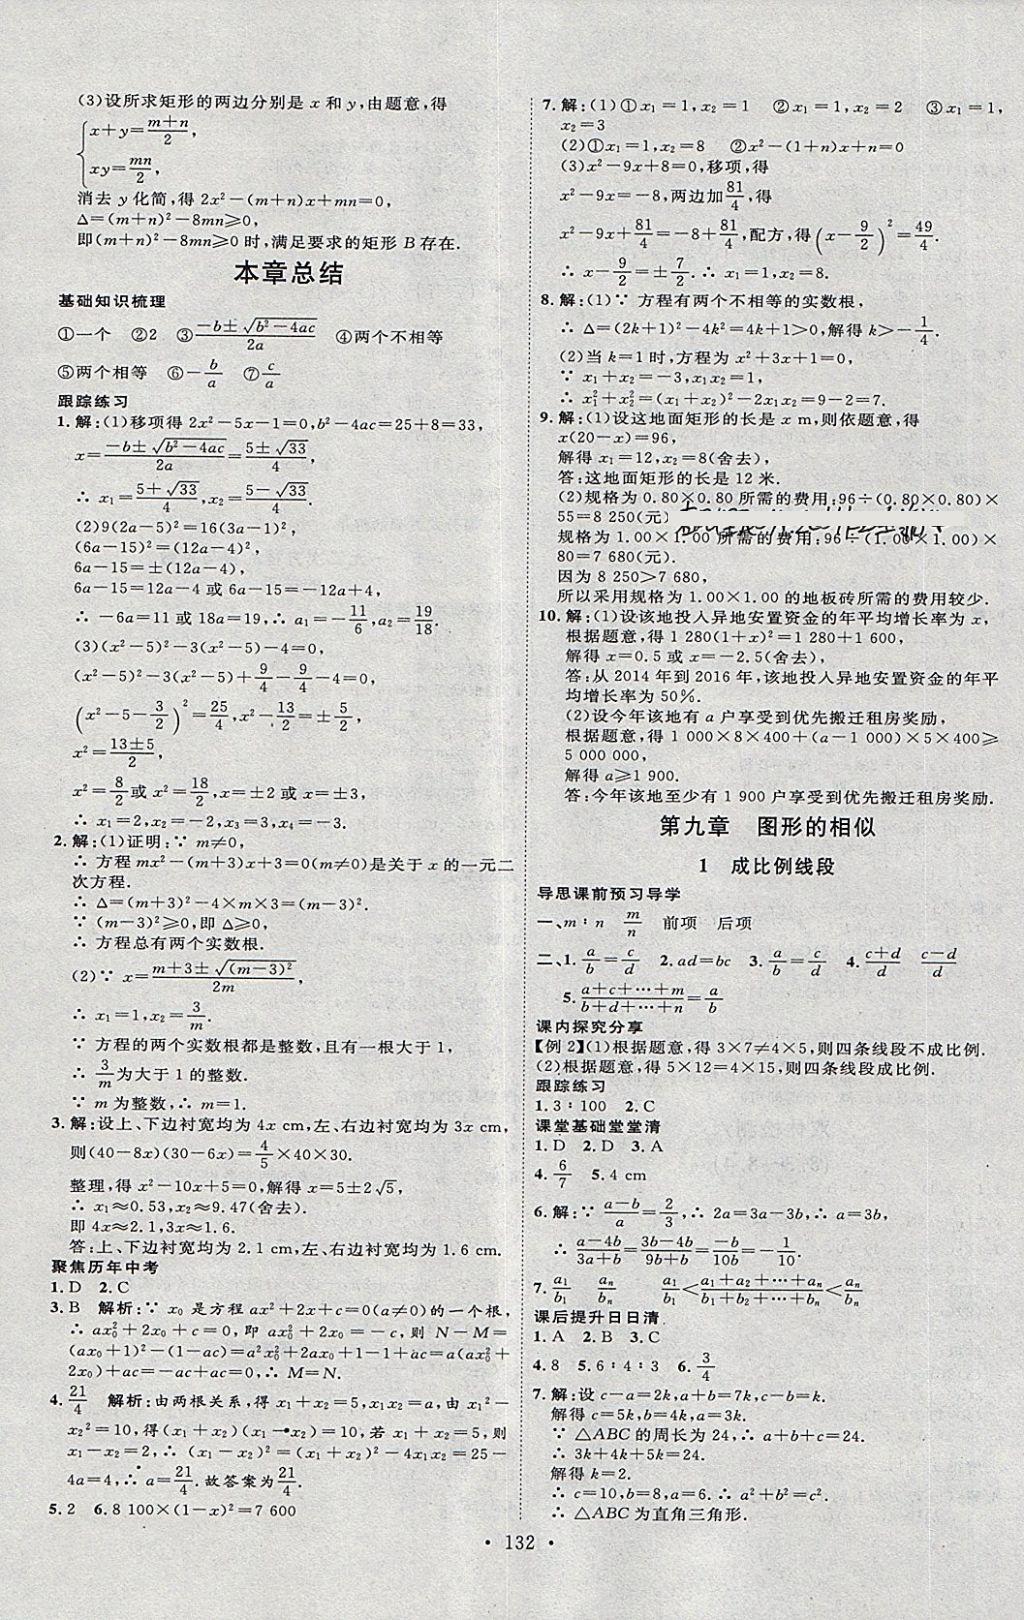 (3)设所求矩形的两边分别是 x 和 y,由题意,得
{x+y=(m+n)/2,
xy=mn/2,
消去 y 化简,得 2x²-(m+n)x+mn=0,
Δ=(m+n)²-8mn⩾0,
即(m+n)²-8mn⩾0 时,满足要求的矩形 B 存在.
本章总结
基础知识梳理
①一个 ②2 ③(-b±√(b²-4ac))/2a ④两个不相等
⑤两个相等 ⑥-b/a ⑦c/a
跟踪练习
1.解:(1)移项得 2x²-5x-1=0,b²-4ac=25+8=33,
x=(-b±√(b²-4ac))/2a=(5±√33)/4,
∴ x₁=(5+√33)/4,x₂=(5-√33)/4.
(2)9(2a-5)²=16(3a-1)²
(6a-15)²=(12a-4)²
6a-15=±(12a-4)
6a-15=12a-4 或 6a-15=-12a+4,
∴ -6a=11 或 18a=19,∴ a₁=-11/6,a₂=19/18.
(3)(x²-5)²-3(x²-5)-4=0
(x²-5)²-3(x²-5)+9/4-9/4-4=0
(x²-5-3/2)²=25/4,x²-13/2=±5/2,
x²=(13±5)/2,
x²=8/2或 x²=18/2,x=±2 或 x=±3,
∴ x₁=2,x₂=-2,x₃=3,x₄=-3.
2.解:(1)证明:∵ m≠0,
∴ 方程 mx²-(m+3)x+3=0(m≠0)是关于 x 的一元二
次方程.
∴ Δ=(m+3)²-4×m×3=(m-3)².
∵ (m-3)²⩾0,即 Δ⩾0,
∴ 方程总有两个实数根.
(2)∵ x=(m+3±√(m-3)²)/2m,
∴ x₁=1,x₂=3/m.
∵ 方程的两个实数根都是整数,且有一根大于 1,
∴ 3/m为大于 1 的整数.
∵ m 为整数,∴ m=1.
3.解:设上、下边衬宽均为 4x cm,左、右边衬宽均为 3x cm,
则(40-8x)(30-6x)=4/5×40×30.
整理,得 x²-10x+5=0,解得 x=5±2√5,
∴ x₁≈0.53,x₂≈9.47(舍去).
即 4x≈2.1,3x≈1.6.
答:上、下边衬宽均为 2.1 cm,左、右边衬宽均为 1.6 cm.
聚焦历年中考
1.D 2.C
3.B 解析:∵ x₀ 是方程 ax²+2x+c=0(a≠0)的一个根,
∴ ax₀²+2x₀+c=0,即 ax₀²+2x₀=-c,则 N-M=
(ax₀+1)²-(1-ac)=a²x₀²+2ax₀+1-1+ac=a(ax₀²+
2x₀)+ac=-ac+ac=0,∴ M=N.
4.21/4 解析:由两根关系,得 x₁+x₂=5,x₁x₂=a,由 x₁²-
x₂²=10,得(x₁+x₂)(x₁-x₂)=10,若 x₁+x₂=5,则
x₁-x₂=2,∴ (x₁-x₂)²=(x₁+x₂)²-4x₁x₂=25-
4a=4,∴ a=21/4.故答案为21/4.
5.2 6.8 100×(1-x)²=7 600
7.解:(1)①x₁=1,x₂=1 ②x₁=1,x₂=2 ③x₁=1,
x₂=3
(2)①x₁=1,x₂=8 ②x²-(1+n)x+n=0
(3)x²-9x+8=0,移项,得
x²-9x=-8,两边加81/4,得
x²-9x+81/4=-8+81/4,配方,得(x-9/2)²=49/4.
∴ x-9/2=±7/2.∴ x₁=1,x₂=8.
8.解:(1)∵ 方程有两个不相等的实数根,
∴ Δ=(2k+1)²-4k²=4k+1>0,解得 k>-1/4.
(2)当 k=1 时,方程为 x²+3x+1=0,
∵ x₁+x₂=-3,x₁x₂=1,
∴ x₁²+x₂²=(x₁+x₂)²-2x₁x₂=9-2=7.
9.解:(1)设这地面矩形的长是 x m,则依题意,得
x(20-x)=96,
解得 x₁=12,x₂=8(舍去),
答:这地面矩形的长是 12 米.
(2)规格为 0.80×0.80 所需的费用:96÷(0.80×0.80)×
55=8 250(元)
规格为 1.00×1.00 所需的费用:96÷(1.00×1.00)×
80=7 680(元).
因为 8 250>7 680,
所以采用规格为 1.00×1.00 的地板砖所需的费用较少.
10.解:(1)设该地投入异地安置资金的年平均增长率为 x,
根据题意,得 1 280(1+x)²=1 280+1 600,
解得 x=0.5 或 x=-2.5(舍去),
答:从 2014 年到 2016 年,该地投入异地安置资金的年平
均增长率为 50%.
(2)设今年该地有 a 户享受到优先搬迁租房奖励,
根据题意,得 1 000×8×400+(a-1 000)×5×400⩾
5 000 000,
解得 a⩾1 900.
答:今年该地至少有 1 900 户享受到优先搬迁租房奖励.
第九章 图形的相似
1 成比例线段
导思课前预习导学
一、m∶n m/n 前项 后项
二、1.a/b=c/d 2.ad=bc 3.a/b=c/d 4.(c+d)/d (c-d)/d
5.(a+c+…+m)/(b+d+…+n)=a/b
课内探究分享
【例 2】(1)根据题意,得 3×7≠4×5,则四条线段不成比例.
(2)根据题意,得 5×12=4×15,则四条线段成比例.
跟踪练习
1.3∶100 2.C
课堂基础堂堂清
1.D 2.D 3.A
4.6/7 5.4 cm
6.解:∵ (a-b)/a=2/3,∴ 2a=3a-3b,∴ a=3b,
∴ (a-4b)/(3a+b)=(3b-4b)/(9b+b)=-b/10b=-1/10.
7.a₁/b₁ aₙ/bₙ a₁/b₁<(a₁+a₂+…+aₙ)/(b₁+b₂+…+bₙ)<aₙ/bₙ
课后提升日日清
1.A 2.B 3.C
4.8 5.6∶4∶3 6.3/4
7.解:设 c-a=2k,a+b=7k,c-b=k.
解得 c=5k,b=4k,a=3k,
∵ △ABC 的周长为 24,∴ a+b+c=24,
∴ 3k+4k+5k=24.
解得 k=2.
∴ c=10,b=8,a=6,∴ a²+b²=c²,
∴ △ABC 为直角三角形.
• 132 •